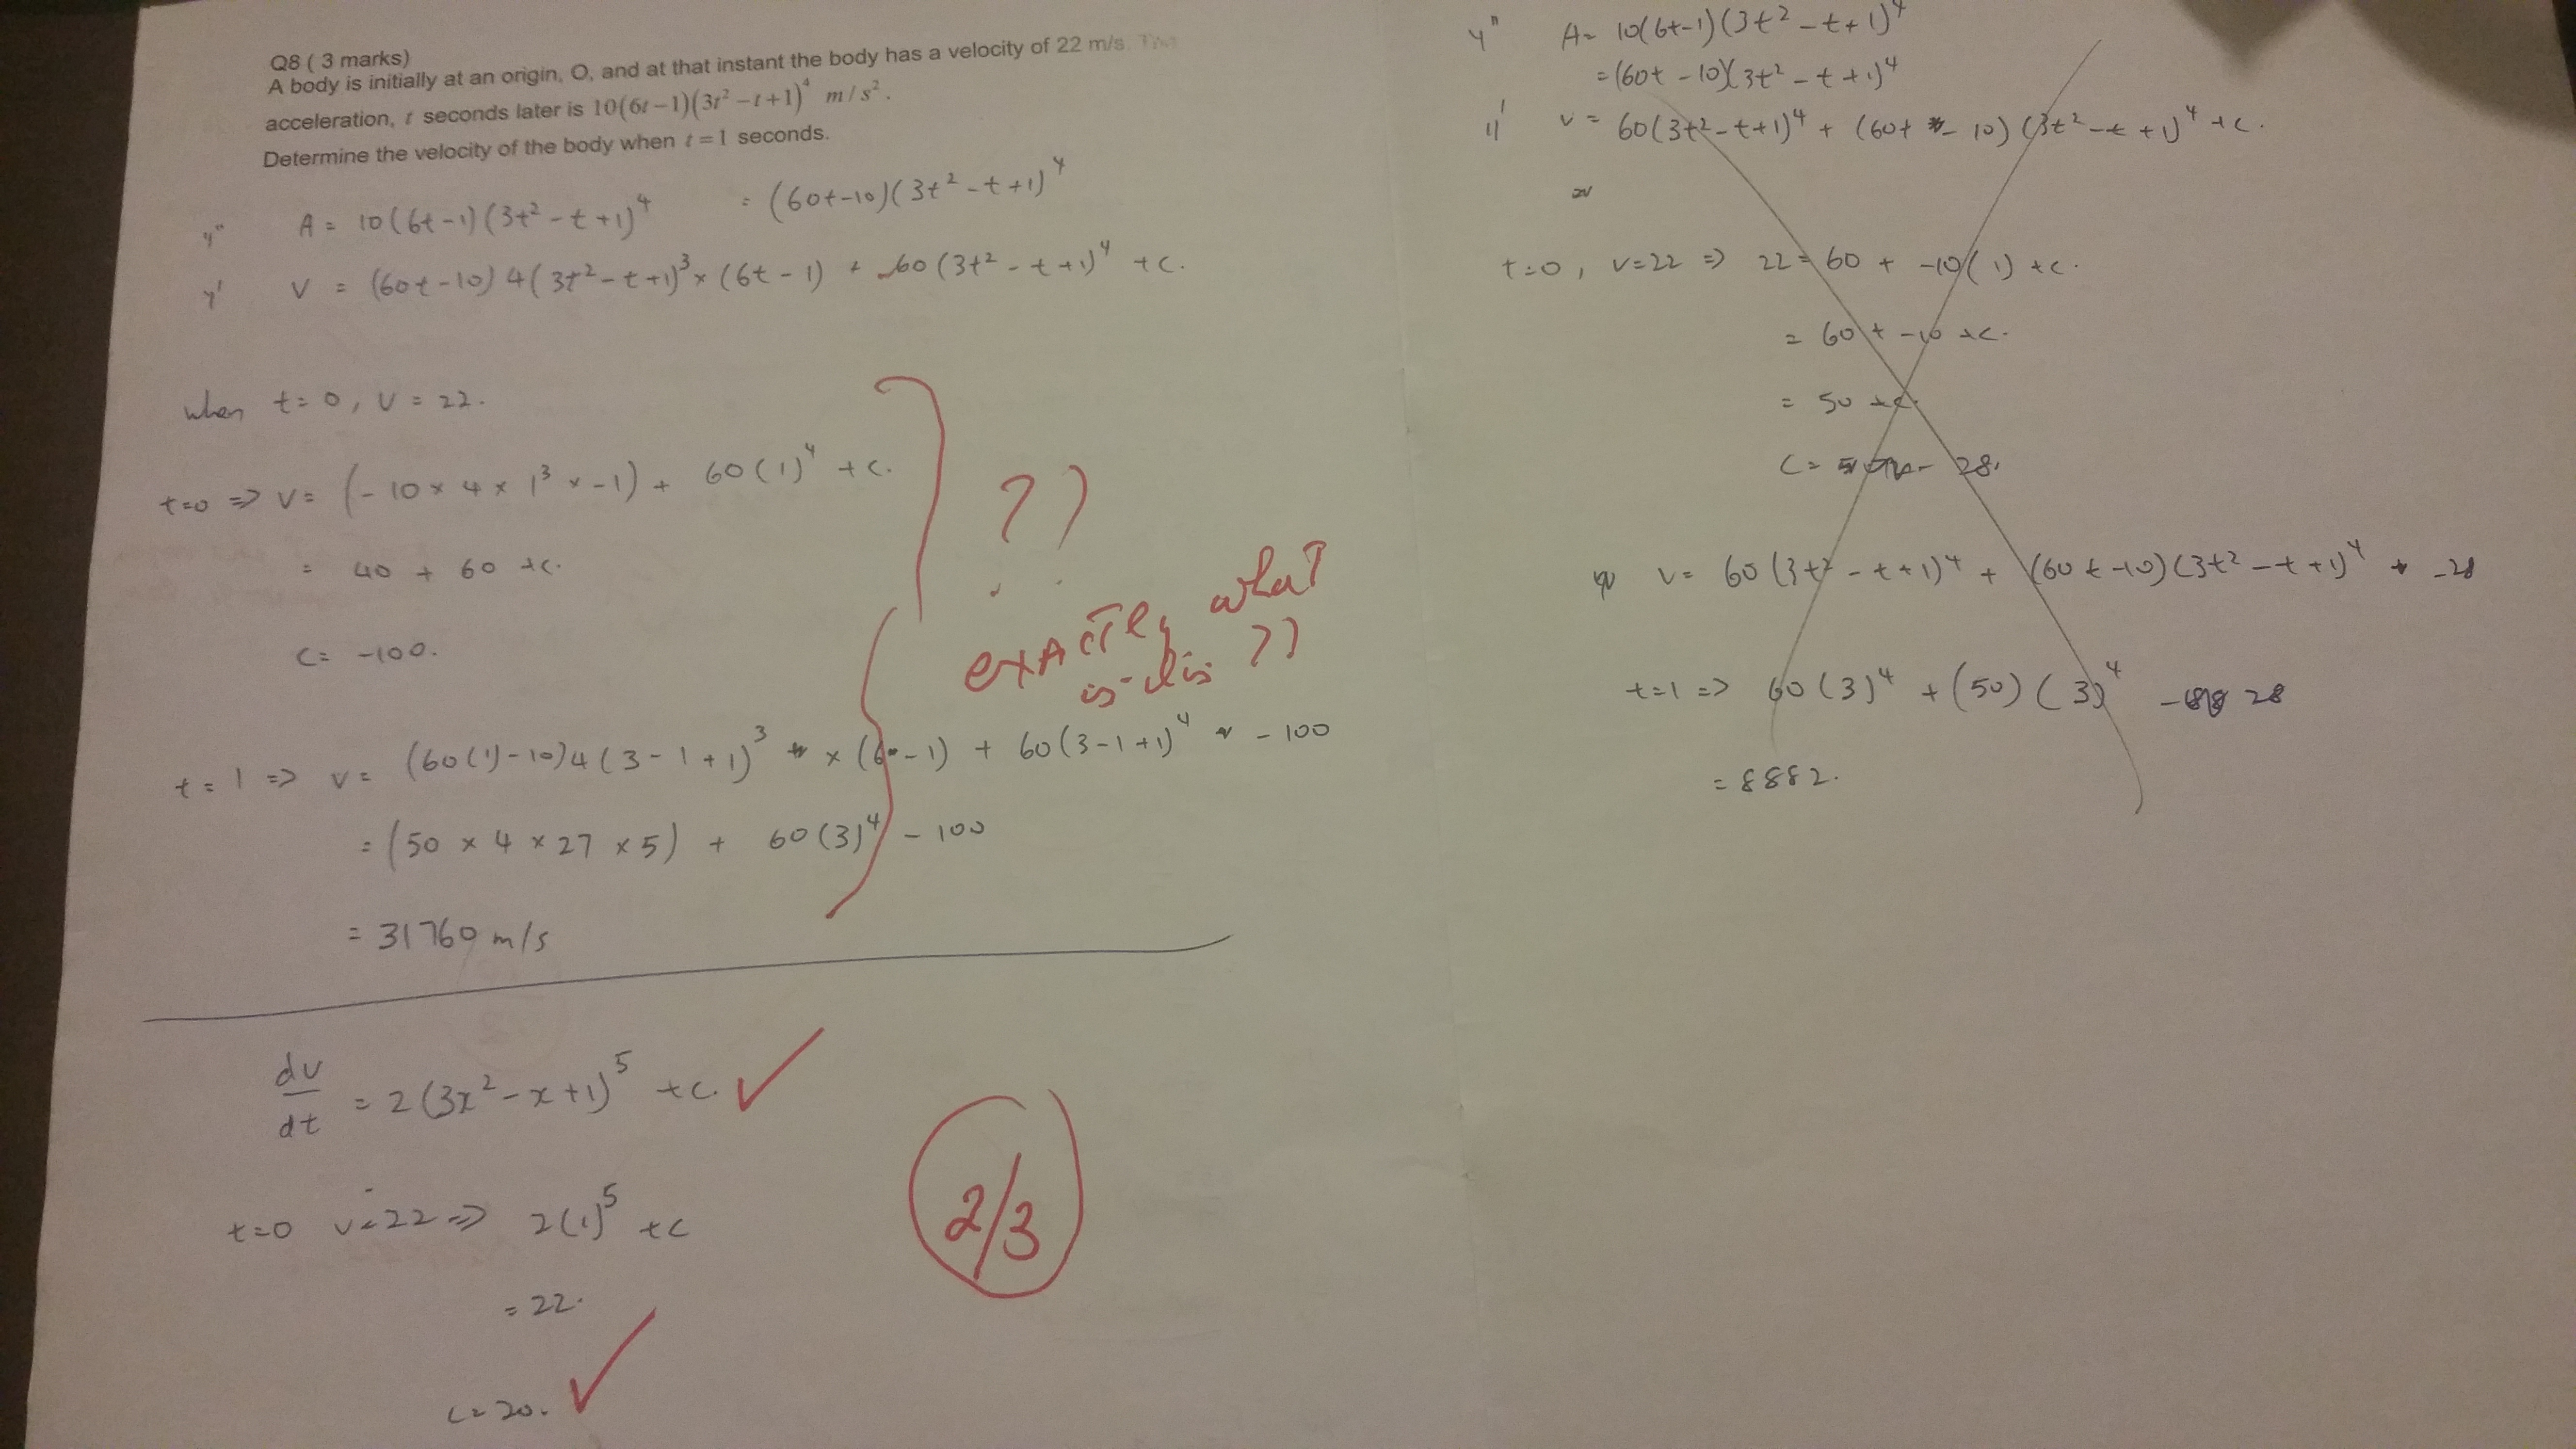 Q8 ( 3 marks)
A body is initially at an origin, O, and at that instant the body has a velocity of 22 m/s. The
acceleration, t seconds later is 10(6t−1)(3t²−t+1)⁴ m/s².
Determine the velocity of the body when t=1 seconds.
y" A = 10(6t-1)(3t²-t+1)⁴ = (60t-10)(3t²-t+1)⁴
y' V = (60t-10)4(3t²-t+1)³×(6t-1) + 60(3t²-t+1)⁴ +c.
when t=0, V=22.
t=0 => V= (-10×4×1³×-1) + 60(1)⁴ +c.
= 40 + 60 +c.
C= -100.
??
exactly what
is this ??
t=1 => V= (60(1)-10)4(3-1+1)³ × (6-1) + 60(3-1+1)⁴ -100
= (50 × 4 × 27 × 5) + 60(3)⁴ - 100
= 31760 m/s
dv/dt = 2(3x²-x+1)⁵ +c.
t=0 v=22 => 2(1)⁵ +c
= 22.
c=20.
2/3
y" A= 10(6t-1)(3t²-t+1)⁴
=(60t-10)(3t²-t+1)⁴
y' v= 60(3t²-t+1)⁴ + (60t - 10)(3t²-t+1)⁴ +c.
t=0, v=22 => 22= 60 + -10(1) +c.
= 60 + -10 +c.
= 50 +c.
C= - 28.
v= 60(3t²-t+1)⁴ + (60t-10)(3t²-t+1)⁴ -28
t=1 => 60(3)⁴ + (50)(3)⁴ - 28
= 8882.